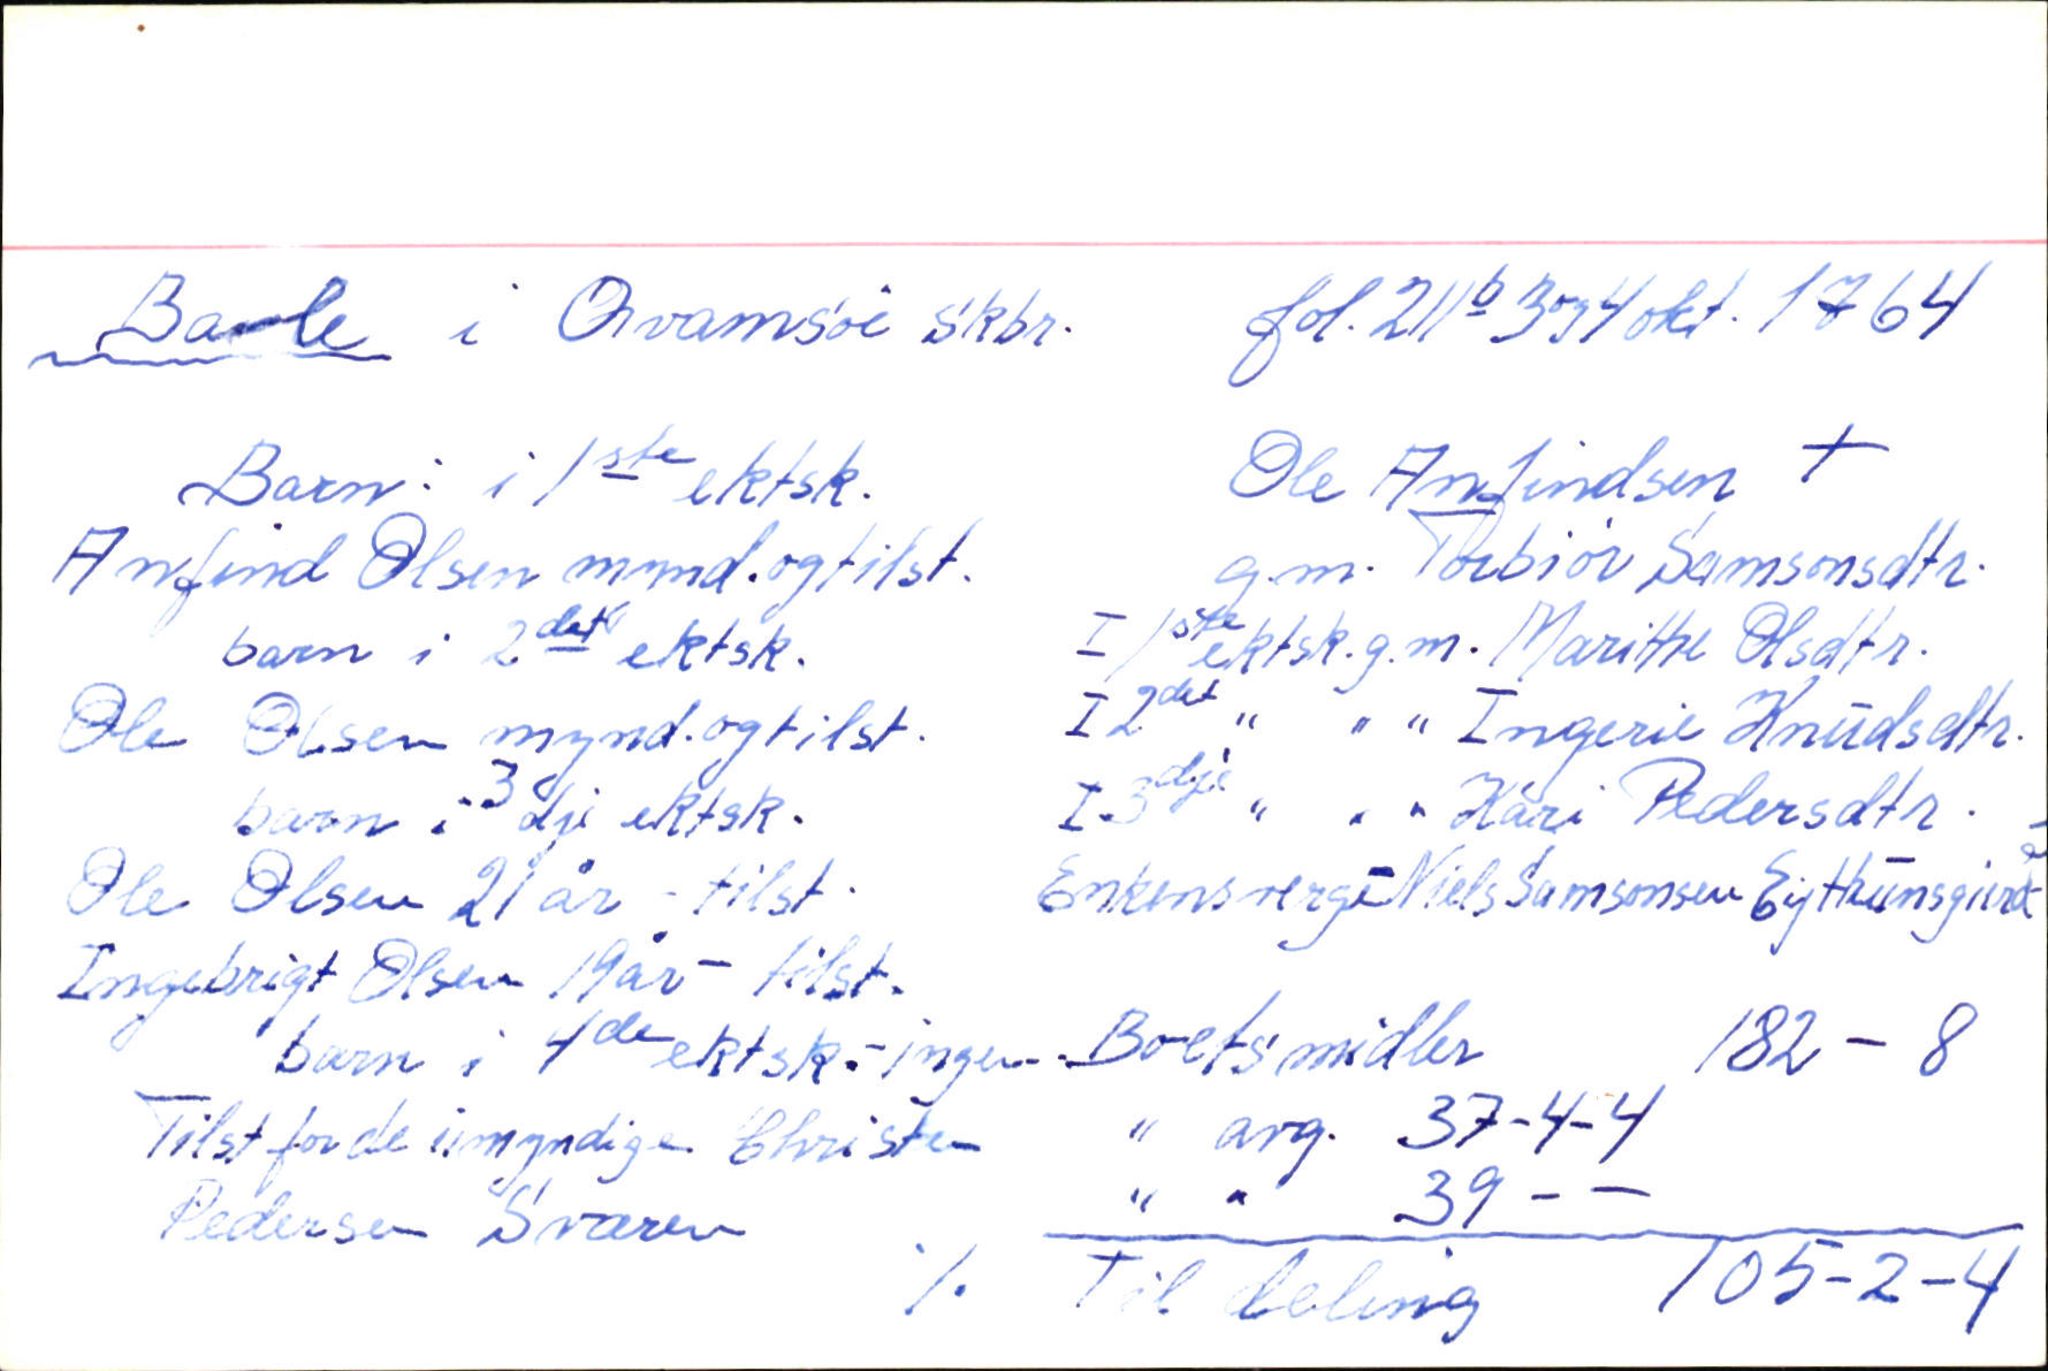 Barle i Qvamsøe skbr. fol. 211b 3 og 4 okt. 1764
Barn: i 1ste ektsk.
Anfind Olsen mynd. og tilst.
barn i 2det ektsk.
Ole Olsen mynd. og tilst.
barn i 3dje ektsk.
Ole Olsen 21 år - tilst.
Ingebrigt Olsen 19 år - tilst.
barn i 4de ektsk. - ingen
Tilst for de umyndige Christen
Pedersen Sværen
Ole Anfindsen +
g.m. Torbiør Samsonsdtr.
I 1ste ektsk. g.m. Maritte Olsdtr.
I 2det " " " Ingerie Knudsdtr.
I 3dje " " " Kari Pedersdtr.
Enkens verge Niels Samsonsen
Boets midler 182 - 8
" avg. 37-4-4
" " 39 - -
% Til deling 105-2-4